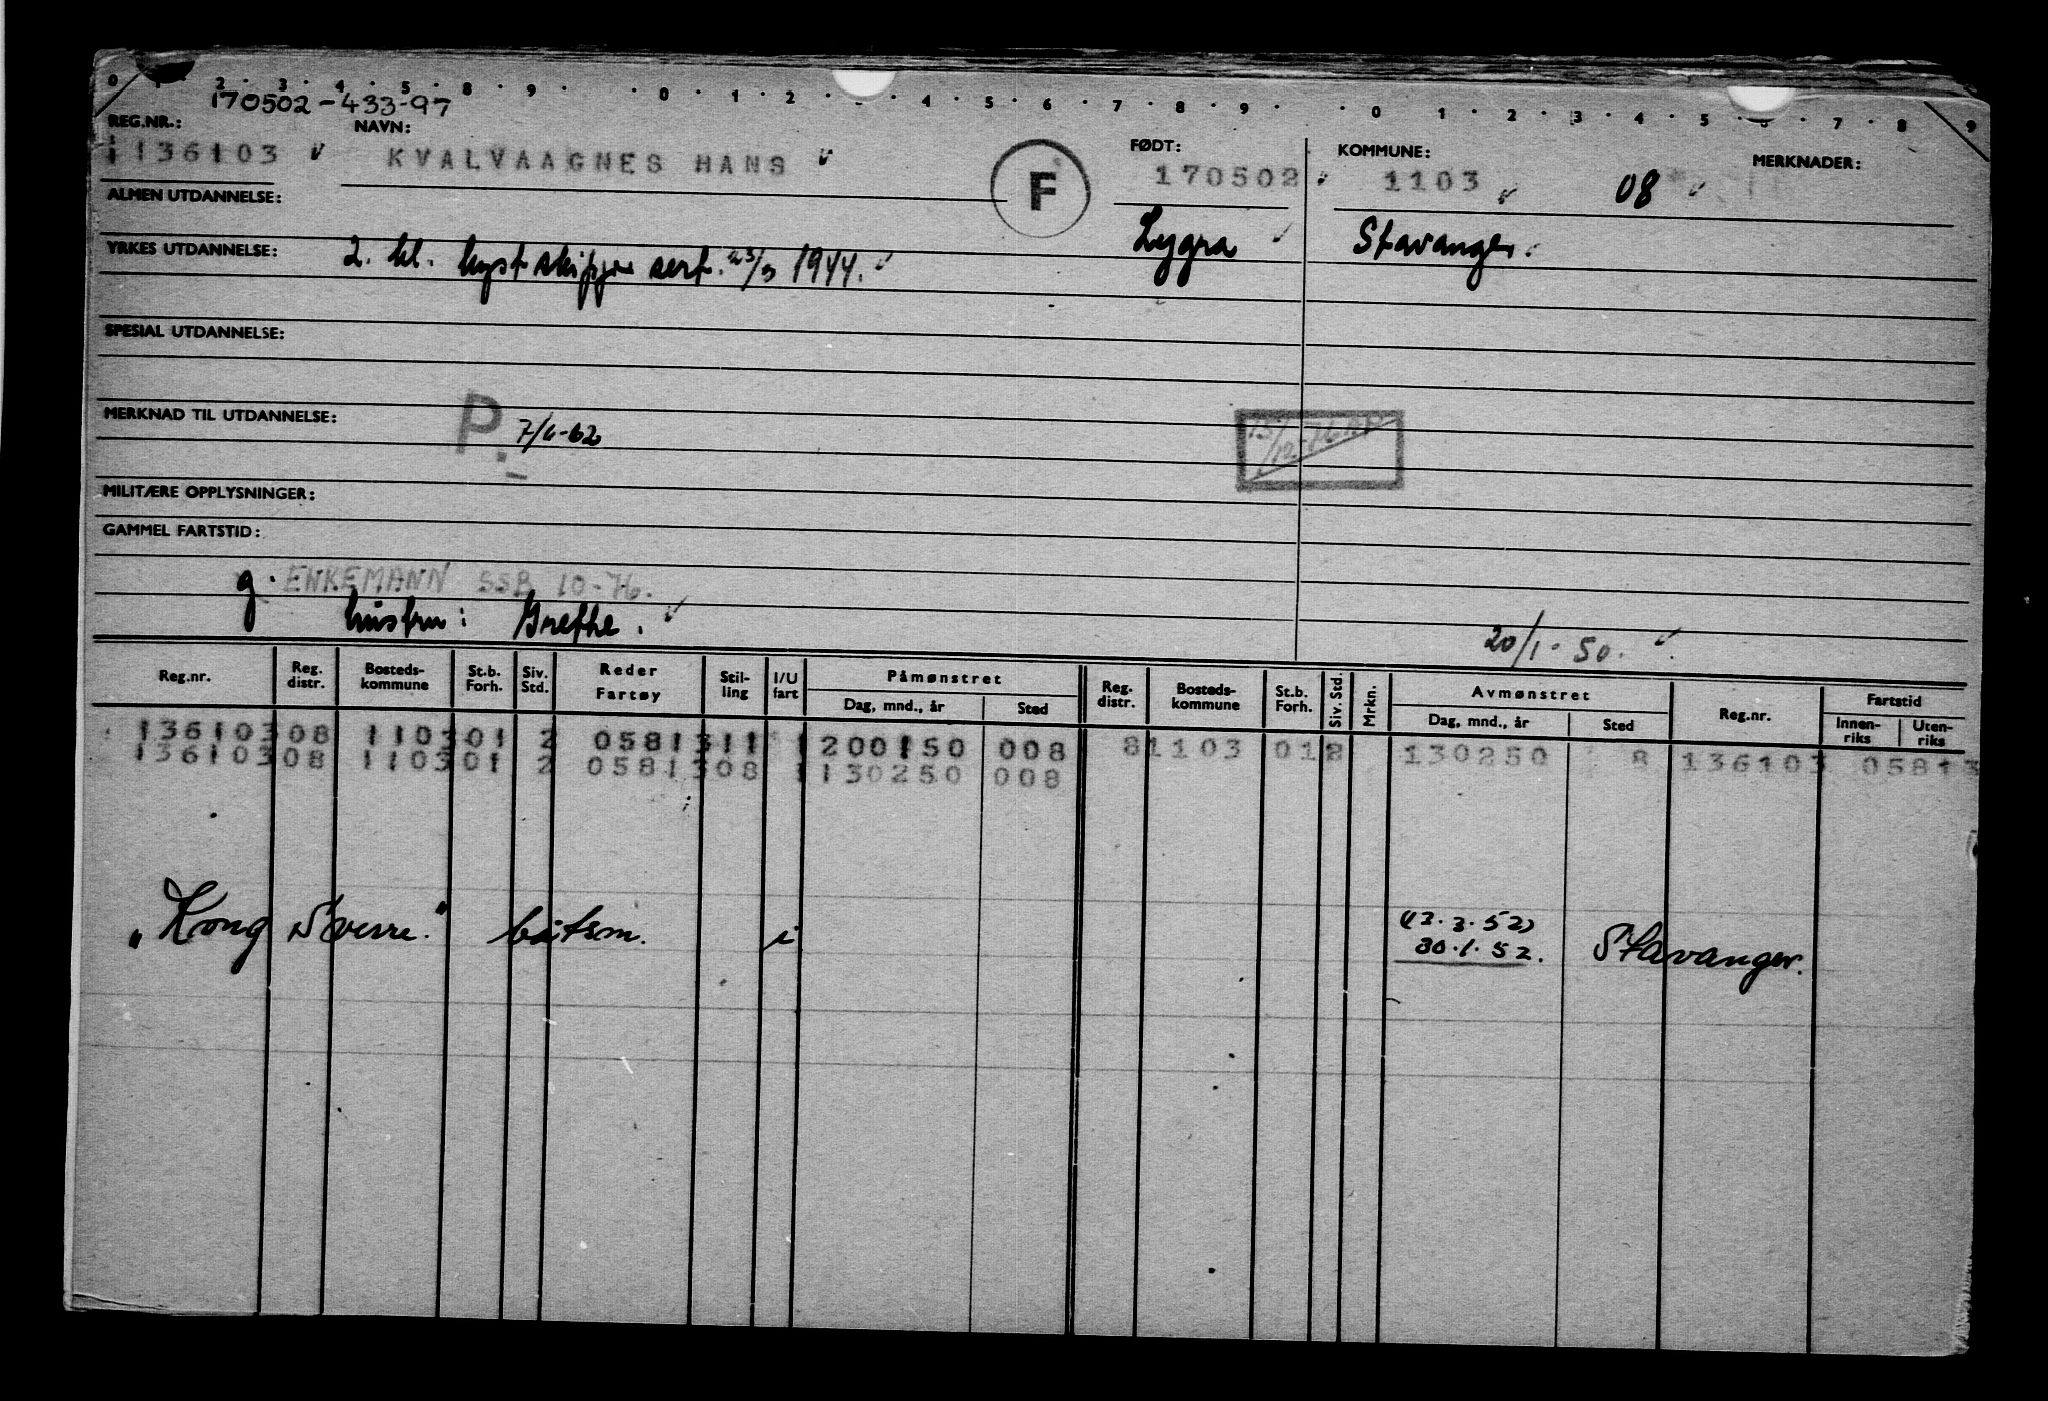 0 1 · 2 · 3 · 4 · 5 · 8 · 9 · · 0 · 1 · 2 · · 4 · 5 · 6 · 7 · 8 · 9 · · 0 · 1 · 2 · 3 · 4 · 5 · 6 · 7 · 8 · 9
170502-433-97
REG.NR.: NAVN: FØDT: KOMMUNE: MERKNADER:
136103 KVALVAAGNES HANS F 170502 1103 08
ALMEN UTDANNELSE: Lygra Stavanger.
YRKES UTDANNELSE: 2. kl. kystskipper sert. 23/3 1944.
SPESIAL UTDANNELSE:
MERKNAD TIL UTDANNELSE: P. 7/6-62
15/12-76
MILITÆRE OPPLYSNINGER:
GAMMEL FARTSTID:
g. ENKEMANN SSB 10-76.
hustru: Grethe. 20/1-50.
Reg.nr. Reg. distr. Bosteds-kommune St.b. Forh. Siv. Std. Reder Fartøy Stil-ling I/U fart Påmønstret Dag, mnd., år Sted Reg. distr. Bosteds-kommune St.b. Forh. Siv. Std. Mrkn. Avmønstret Dag, mnd., år Sted Reg.nr. Fartstid Innen-riks Uten-riks
136103 08 1103 01 2 05813 11 1 200150 008 8 1103 01 2 130250 8 136103 05813
136103 08 1103 01 2 05813 08 1 130250 008
"Kong Sverre." båtsm. i (13.3.52)
30.1.52. Stavanger.